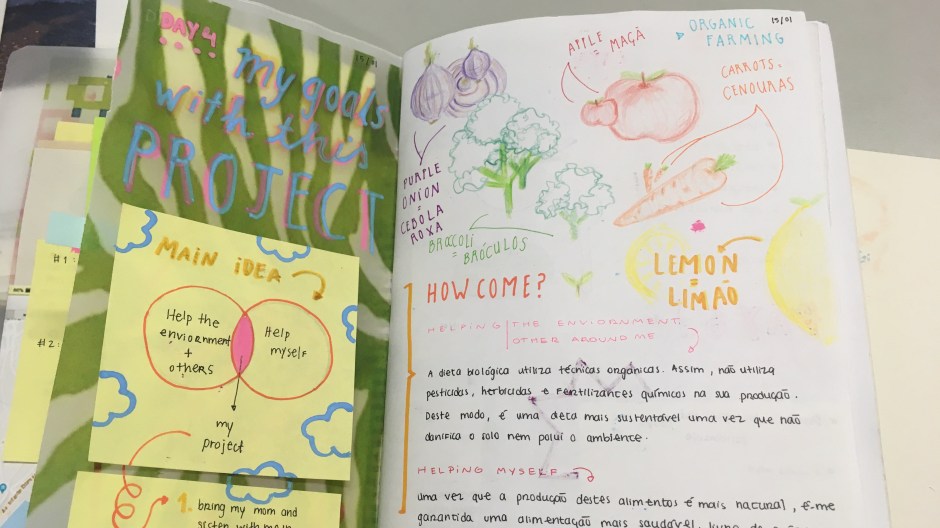 DAY 4
15/01
my goals
with this
PROJECT
MAIN iDEA
Help the
enviornment
+
others
Help
myself
my
project
1. bring my mom and
#1:
#2:
15/01
ORGANIC
FARMING
APPLE
= MAÇÃ
CARROTS.
CENOURAS
PURPLE
ONION
=
CEBOLA
ROXA
BROCOLI
= BRÓCULOS
LEMON
=
LIMÃO
HOW COME?
HELPING THE ENVIORNMENT,
OTHER AROUND ME
A dieta biológica utiliza técnicas orgânicas. Assim, não utiliza
pesticidas, herbicidas e fertilizantes químicos na sua produção.
Deste modo, é uma dieta mais sustentável uma vez que não
danifica o solo nem polui o ambiente.
HELPING MYSELF
uma vez que a produção destes alimentos é mais natural, é-me
garantida uma alimentação mais saudável,